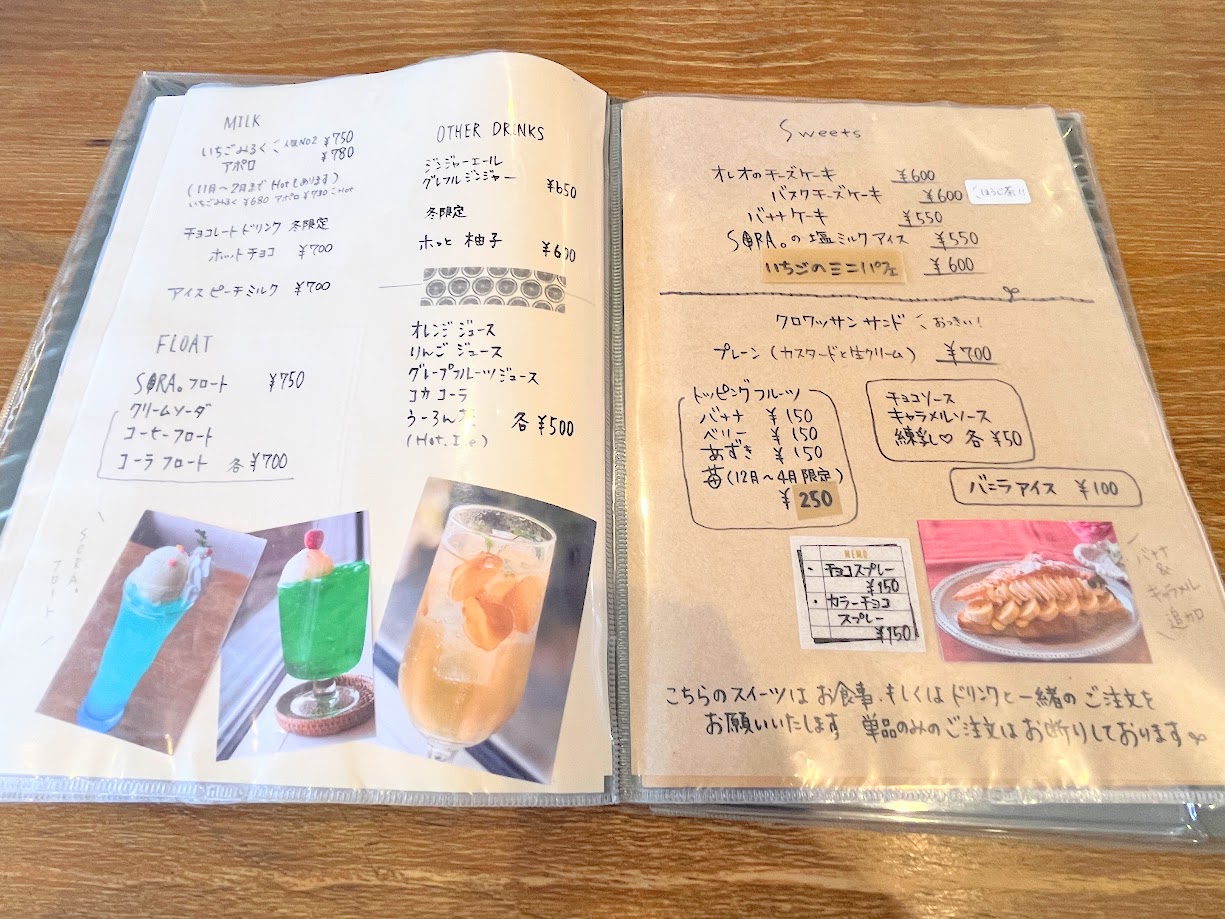 MILK
いちごみるく 人気NO2 ¥750
アポロ ¥780
(11月〜2月まで Hotもあります)
いちごみるく ¥680 アポロ ¥730 Hot
チョコレートドリンク 冬限定
ホットチョコ ¥700
アイスピーチミルク ¥700
FLOAT
SORA。フロート ¥750
クリームソーダ
コーヒーフロート
コーラフロート 各¥700
SORA。
フロート
OTHER DRINKS
ジンジャーエール
グレフルジンジャー ¥650
冬限定
ホッと 柚子 ¥600
オレンジジュース
りんごジュース
グレープフルーツジュース
コカコーラ
うーろん茶 各¥500
(Hot.Ice)
Sweets
オレオのチーズケーキ ¥600
バスクチーズケーキ ¥600 ほうじ茶!!
バナナケーキ ¥550
SORA。の塩ミルクアイス ¥550
いちごのミニパフェ ¥600
クロワッサンサンド おっきい!
プレーン(カスタードと生クリーム) ¥700
トッピングフルーツ
バナナ ¥150
ベリー ¥150
あずき ¥150
苺(12月〜4月限定)
¥250
チョコソース
キャラメルソース
練乳♡ 各¥50
バニラアイス ¥100
MEMO
・チョコスプレー
¥150
・カラーチョコ
スプレー
¥150
バナナ
&
キャラメル
追加
こちらのスイーツは お食事、もしくはドリンクと一緒のご注文を
お願いいたします 単品のみのご注文はお断りしております